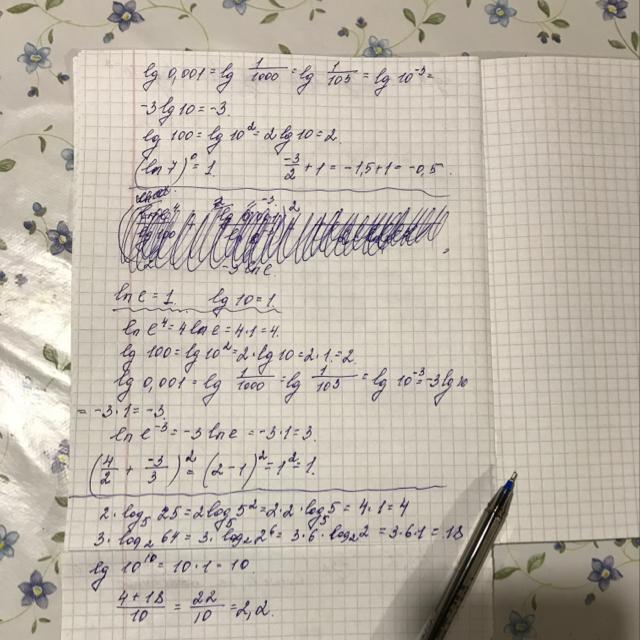 lg 0,001 = lg 1/1000 = lg 1/10³ = lg 10⁻³ =
-3 lg 10 = -3.
lg 100 = lg 10² = 2 lg 10 = 2.
(ln 7)⁰ = 1. -3/2 + 1 = -1,5 + 1 = -0,5.
ln e = 1. lg 10 = 1.
ln e⁴ = 4 ln e = 4·1 = 4.
lg 100 = lg 10² = 2·lg 10 = 2·1 = 2
lg 0,001 = lg 1/1000 = lg 1/10³ = lg 10⁻³ = -3 lg 10
= -3·1 = -3.
ln e⁻³ = -3 ln e = -3·1 = 3.
(4/2 + -3/3)² = (2-1)² = 1² = 1.
2·log₅ 25 = 2 log₅ 5² = 2·2·log₅ 5 = 4·1 = 4
3·log₂ 64 = 3·log₂ 2⁶ = 3·6·log₂ 2 = 3·6·1 = 18
lg 10¹⁰ = 10·1 = 10
4+18/10 = 22/10 = 2,2.